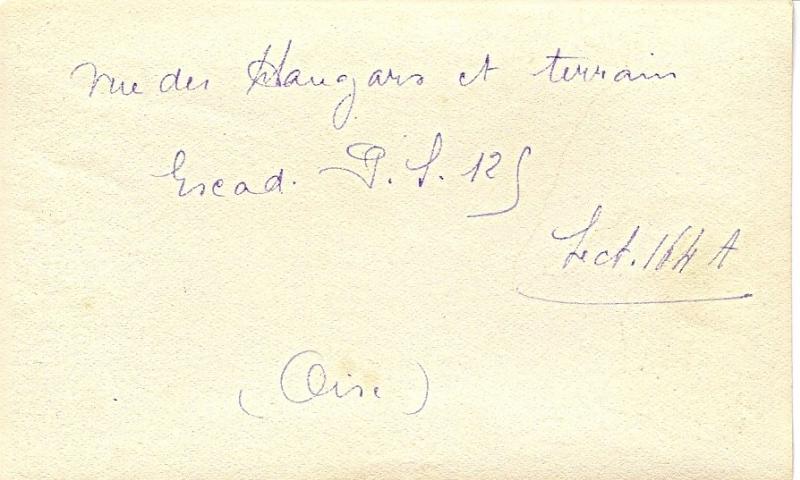 Vue des Hangars et terrain
Escad. P. S. 125
Sect. 164 A
(Oise)